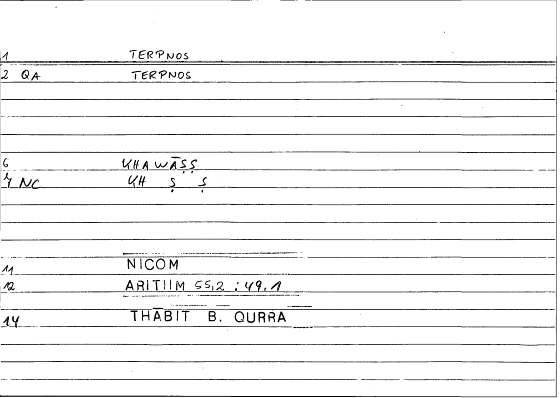 1 TERPNOS
2 QA TERPNOS
6 KHAWĀṢṢ
7 NC KH Ṣ Ṣ
11 NICOM
12 ARITIIM 55,2 : 49,1
14 THĀBIT B. QURRA